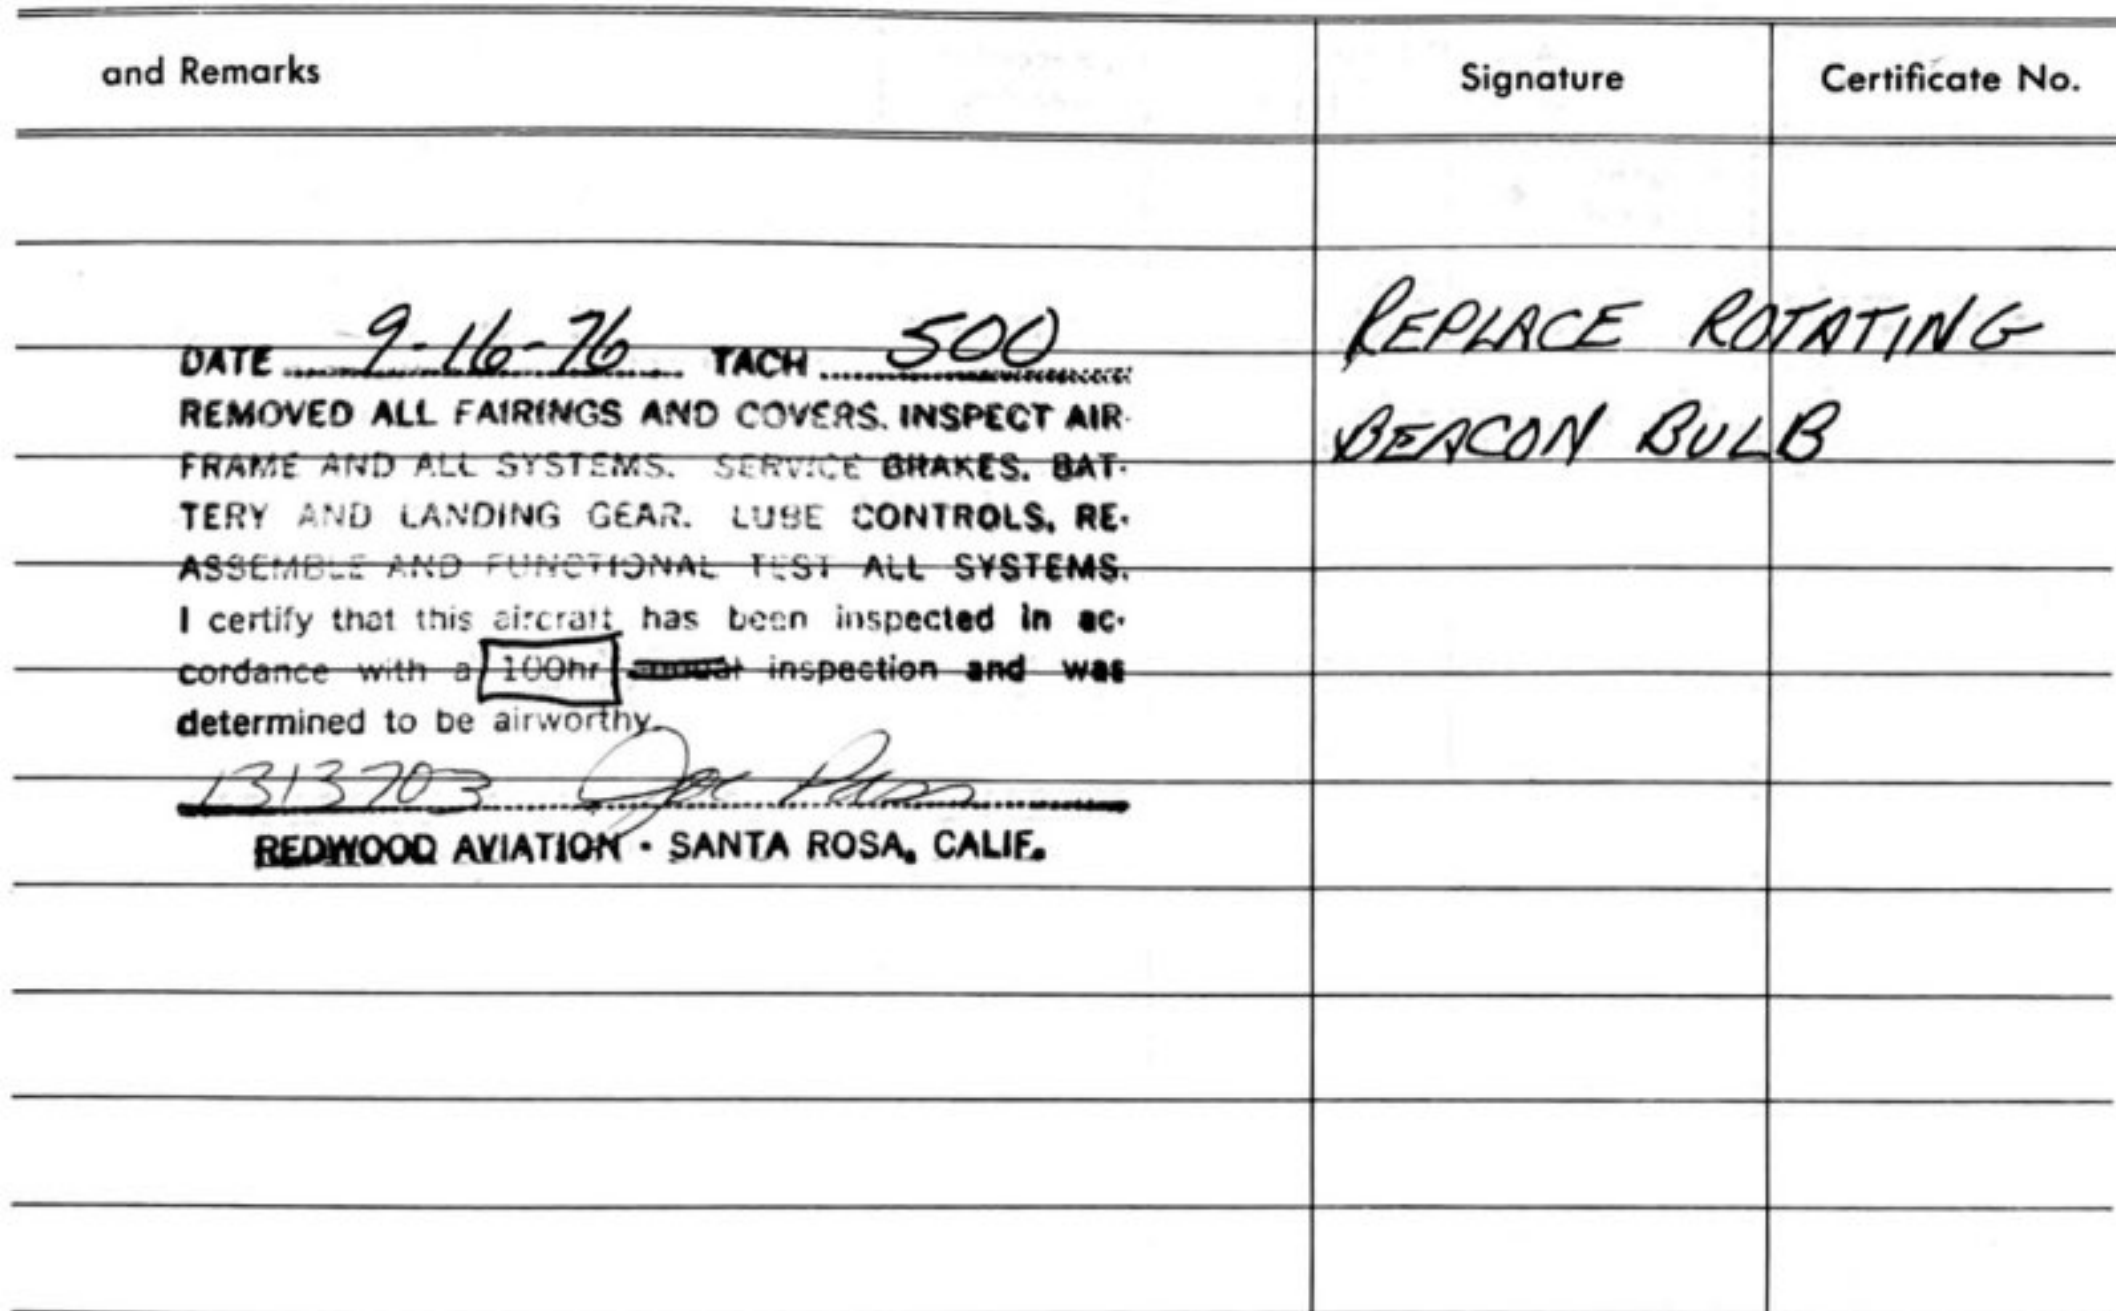 and Remarks
Signature
Certificate No.
DATE 9-16-76 TACH 500
REMOVED ALL FAIRINGS AND COVERS. INSPECT AIR-
FRAME AND ALL SYSTEMS. SERVICE BRAKES, BAT-
TERY AND LANDING GEAR. LUBE CONTROLS, RE-
ASSEMBLE AND FUNCTIONAL TEST ALL SYSTEMS.
I certify that this aircraft has been inspected in ac-
cordance with a 100hr annual inspection and was
determined to be airworthy.
1313703 Joe Pass
REDWOOD AVIATION · SANTA ROSA, CALIF.
REPLACE ROTATING
BEACON BULB